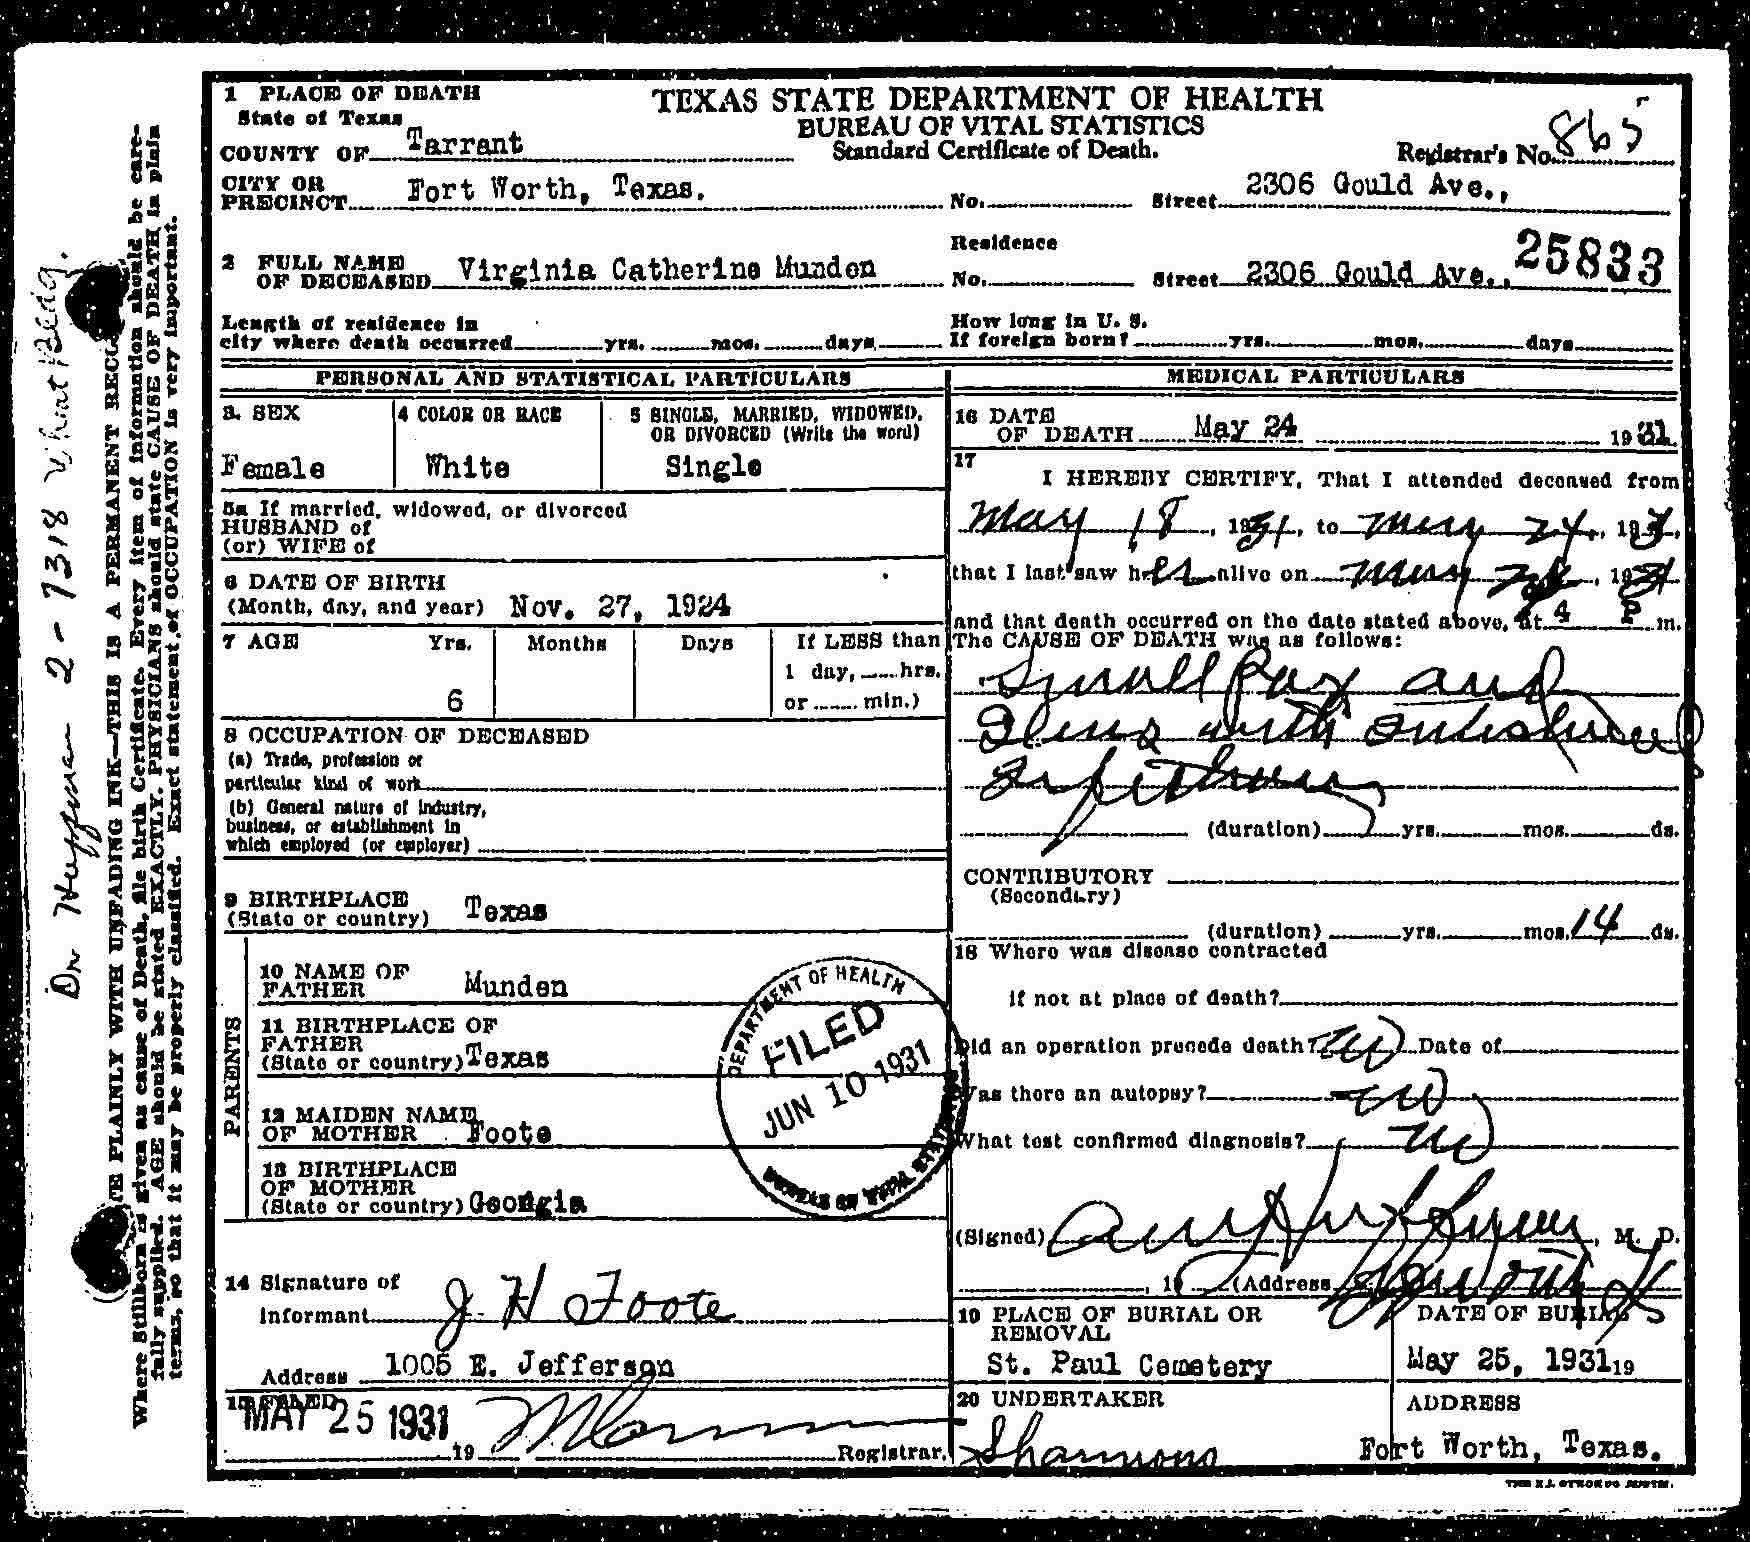 1 PLACE OF DEATH
State of Texas
COUNTY OF Tarrant
CITY OR PRECINCT Fort Worth, Texas.
TEXAS STATE DEPARTMENT OF HEALTH
BUREAU OF VITAL STATISTICS
Standard Certificate of Death.
Registrar's No. 865
No. Street 2306 Gould Ave.,
2 FULL NAME OF DECEASED Virginia Catherine Munden
Residence
No. Street 2306 Gould Ave.,
25833
Length of residence in
city where death occurred yrs. mos. days
How long in U. S.
If foreign born? yrs. mos. days
PERSONAL AND STATISTICAL PARTICULARS
3. SEX
Female
4 COLOR OR RACE
White
5 SINGLE, MARRIED, WIDOWED,
OR DIVORCED (Write the word)
Single
5a If married, widowed, or divorced
HUSBAND of
(or) WIFE of
6 DATE OF BIRTH
(Month, day, and year) Nov. 27, 1924
7 AGE Yrs. Months Days If LESS than
1 day, hrs.
6 or min.)
8 OCCUPATION OF DECEASED
(a) Trade, profession or
particular kind of work
(b) General nature of industry,
business, or establishment in
which employed (or employer)
9 BIRTHPLACE
(State or country) Texas
PARENTS
10 NAME OF
FATHER Munden
11 BIRTHPLACE OF
FATHER
(State or country) Texas
12 MAIDEN NAME
OF MOTHER Foote
13 BIRTHPLACE
OF MOTHER
(State or country) Georgia
14 Signature of
Informant J. H Foote
Address 1005 E. Jefferson
15 FILED
MAY 25 1931
19 Registrar.
DEPARTMENT OF HEALTH
FILED
JUN 10 1931
BUREAU OF VITAL STATISTICS
MEDICAL PARTICULARS
16 DATE
OF DEATH May 24 1931.
17
I HEREBY CERTIFY, That I attended deceased from
May 18, 1931, to May 24, 193
that I last saw her alive on May 24, 1931
and that death occurred on the date stated above, at 4 P m.
The CAUSE OF DEATH was as follows:
Small Pox and
with
(duration) yrs. mos. ds.
CONTRIBUTORY
(Secondary)
(duration) yrs. mos. 14 ds.
18 Where was disease contracted
if not at place of death?
Did an operation precede death? no Date of
Was there an autopsy? no
What test confirmed diagnosis? no
(Signed) M. D.
, 19 (Address
19 PLACE OF BURIAL OR
REMOVAL
St. Paul Cemetery
DATE OF BURIAL
May 25, 1931 19
20 UNDERTAKER
Shannons
ADDRESS
Fort Worth, Texas.
Dr Huffman 2-7318
WRITE PLAINLY WITH UNFADING INK—THIS IS A PERMANENT RECO
Where Stillborn is given as cause of Death, file birth Certificate. Every item of information should be care-
fully supplied. AGE should be stated EXACTLY. PHYSICIANS should state CAUSE OF DEATH in plain
terms, so that it may be properly classified. Exact statement of OCCUPATION is very important.